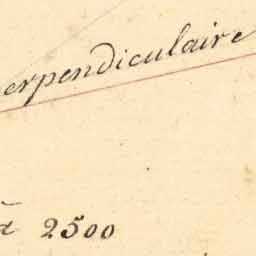 erpendiculaire
à 2500